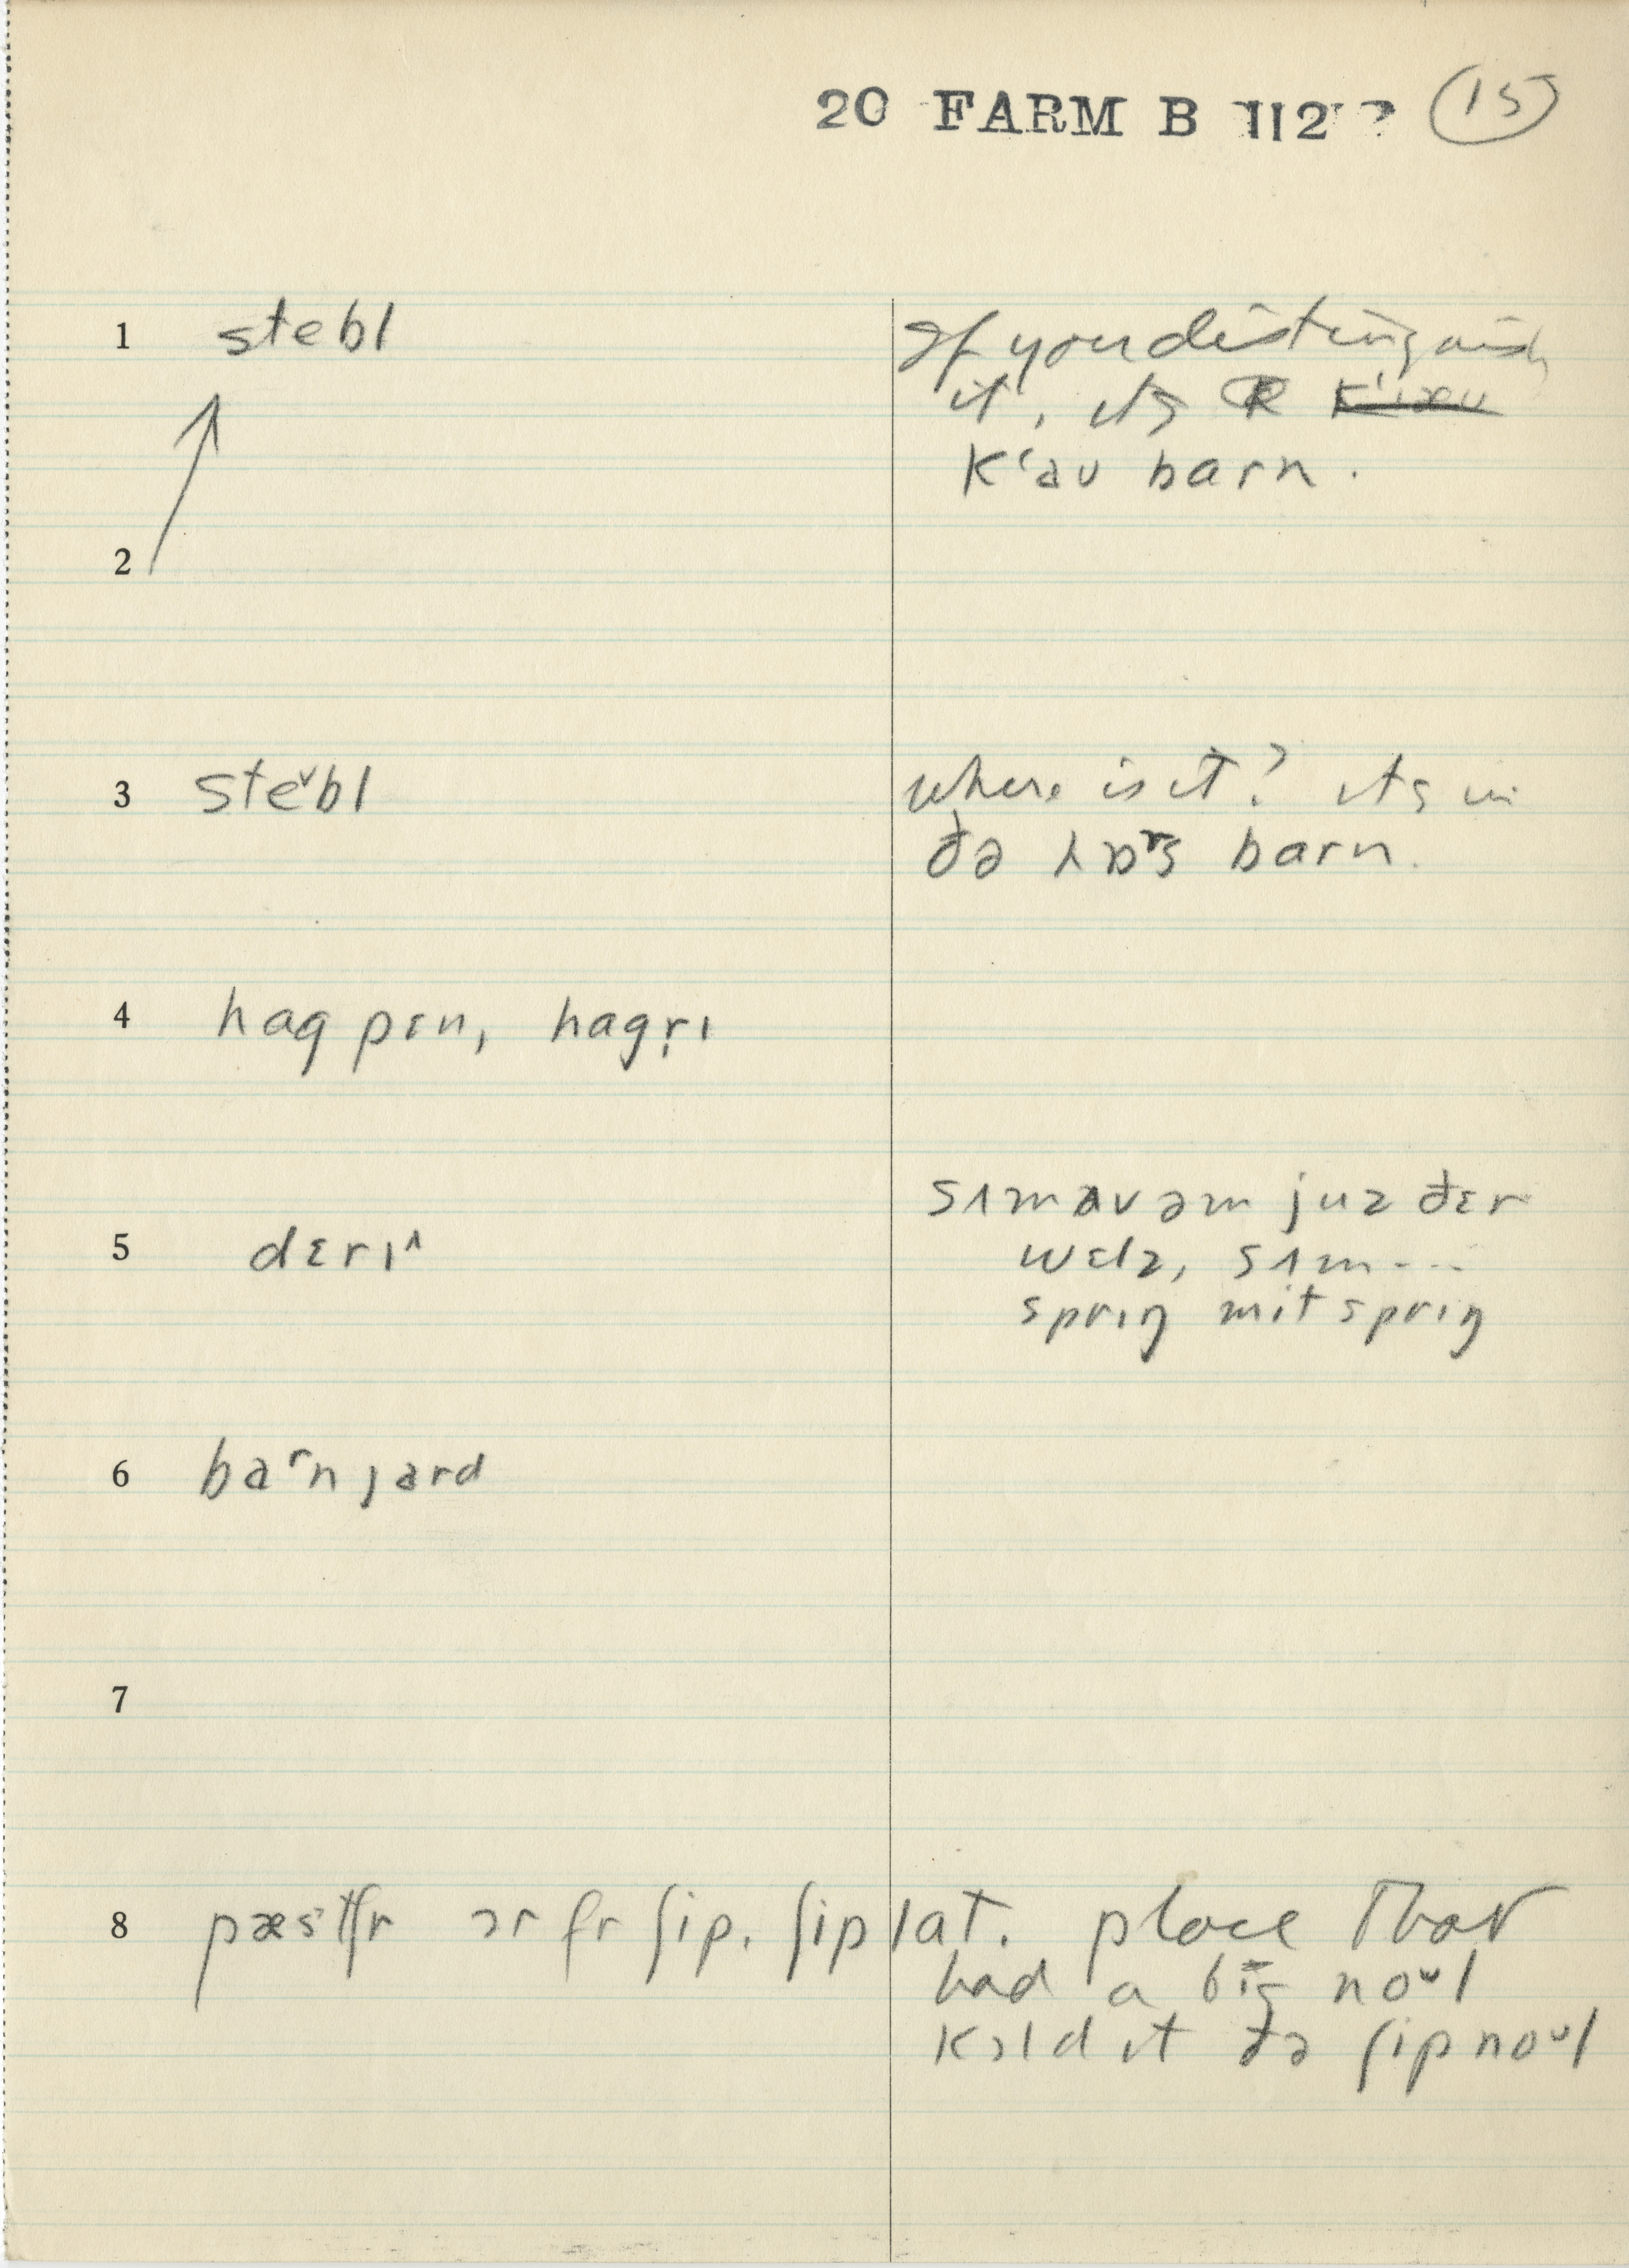 20 FARM B 112 ? (15)
1 stebl
If you distinguish
it, its a k̶'̶ı̶æ̶u̶
k‘au barn.
2
3 steᵛbl
where is it? its in
ðə hɒʳs barn.
4 hag pɛn, hagrɪ
5 dɛrɪ^
sʌmʌv əm juz ðɛr
wɛlz, sʌm---
sprɪŋ mit sprɪŋ
6 baʳn jard
7
8 pæstʃr ɔr fr ʃip. ʃip lat. place that
had a big noᵘl
kɔld it ðə ʃip noᵘl